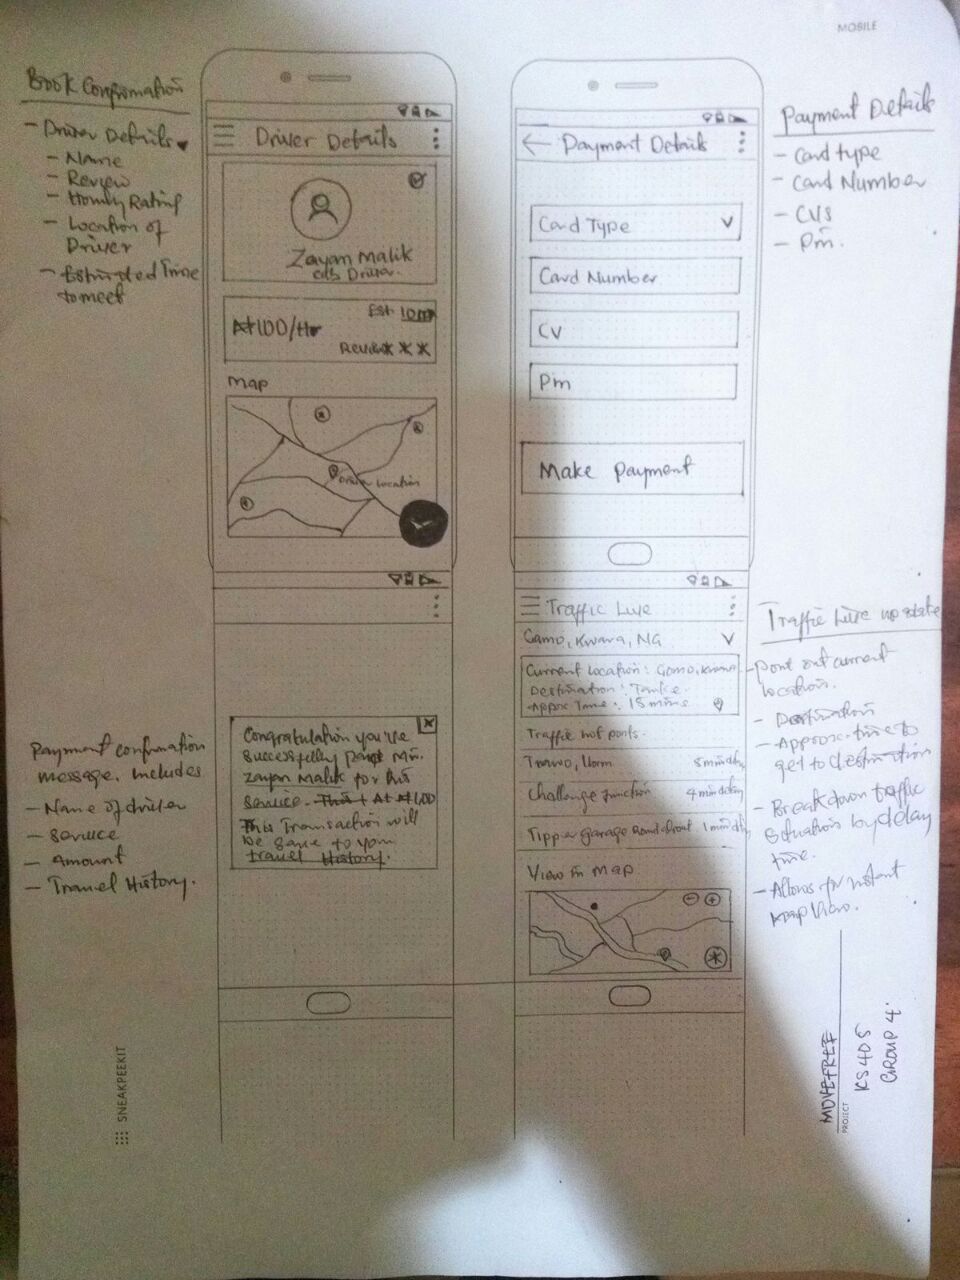 MOBILE
Book Confirmation
- Driver Details
- Name
- Review
- Hourly Rating
- Location of
Driver
- Estimated Time
to meet
Driver Details
Zayan Malik
Driver.
₦100/Hr
Est 10m
Review
Map
Driver Location
Payment Details
Card Type
Card Number
CV
Pin
Make Payment
Payment Details
- Card type
- Card Number
- CVS
- Pin.
Payment confirmation
message. Includes
- Name of driver
- Service
- Amount
- Travel History.
Congratulation you've
successfully paid Mr.
Zayan Malik for his
service.
This Transaction will
be save to your
travel History.
Traffic Live
Gamo, Kwara, NG
Current Location: Gamo, Kwara
Destination: Tanke.
Approx Time: 15 mins
Traffic hot ponts.
5 min delay
Challenge Junction 4 min delay
Tipper garage Round about 1 min delay
View in Map
Traffic Live update
- Pont out current
location.
- Destination
- Approx. time to
get to destination
- Breakdown traffic
situation by delay
time.
- Allows for instant
Map View.
SNEAKPEEKIT
MOVEFREE
PROJECT
KS405
GROUP 4.